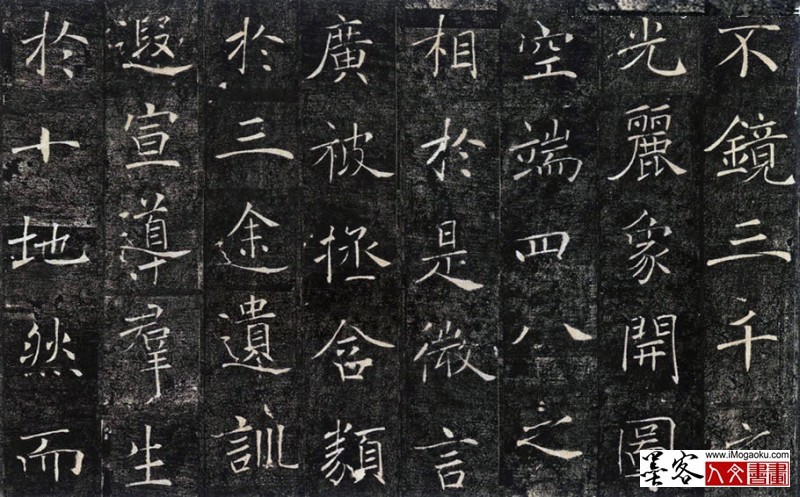 不鏡三千之
光麗象開圖
空端四八之
相於是微言
廣被拯含類
於三途遺訓
遐宣導羣生
於十地然而
墨客
www.iMogaoku.com
人文書畫